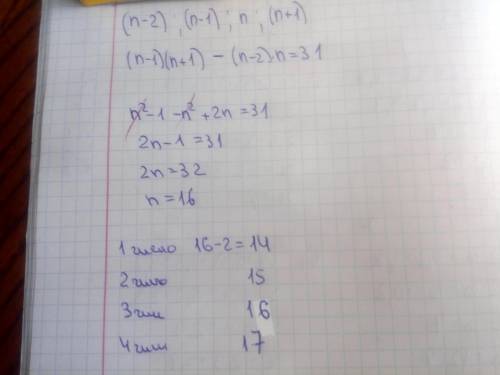 (n-2) ; (n-1) ; n ; (n+1)
(n-1)(n+1) - (n-2)·n=31
n²-1-n²+2n=31
2n-1=31
2n=32
n=16
1 число 16-2=14
2 число 15
3 чис 16
4 чис 17